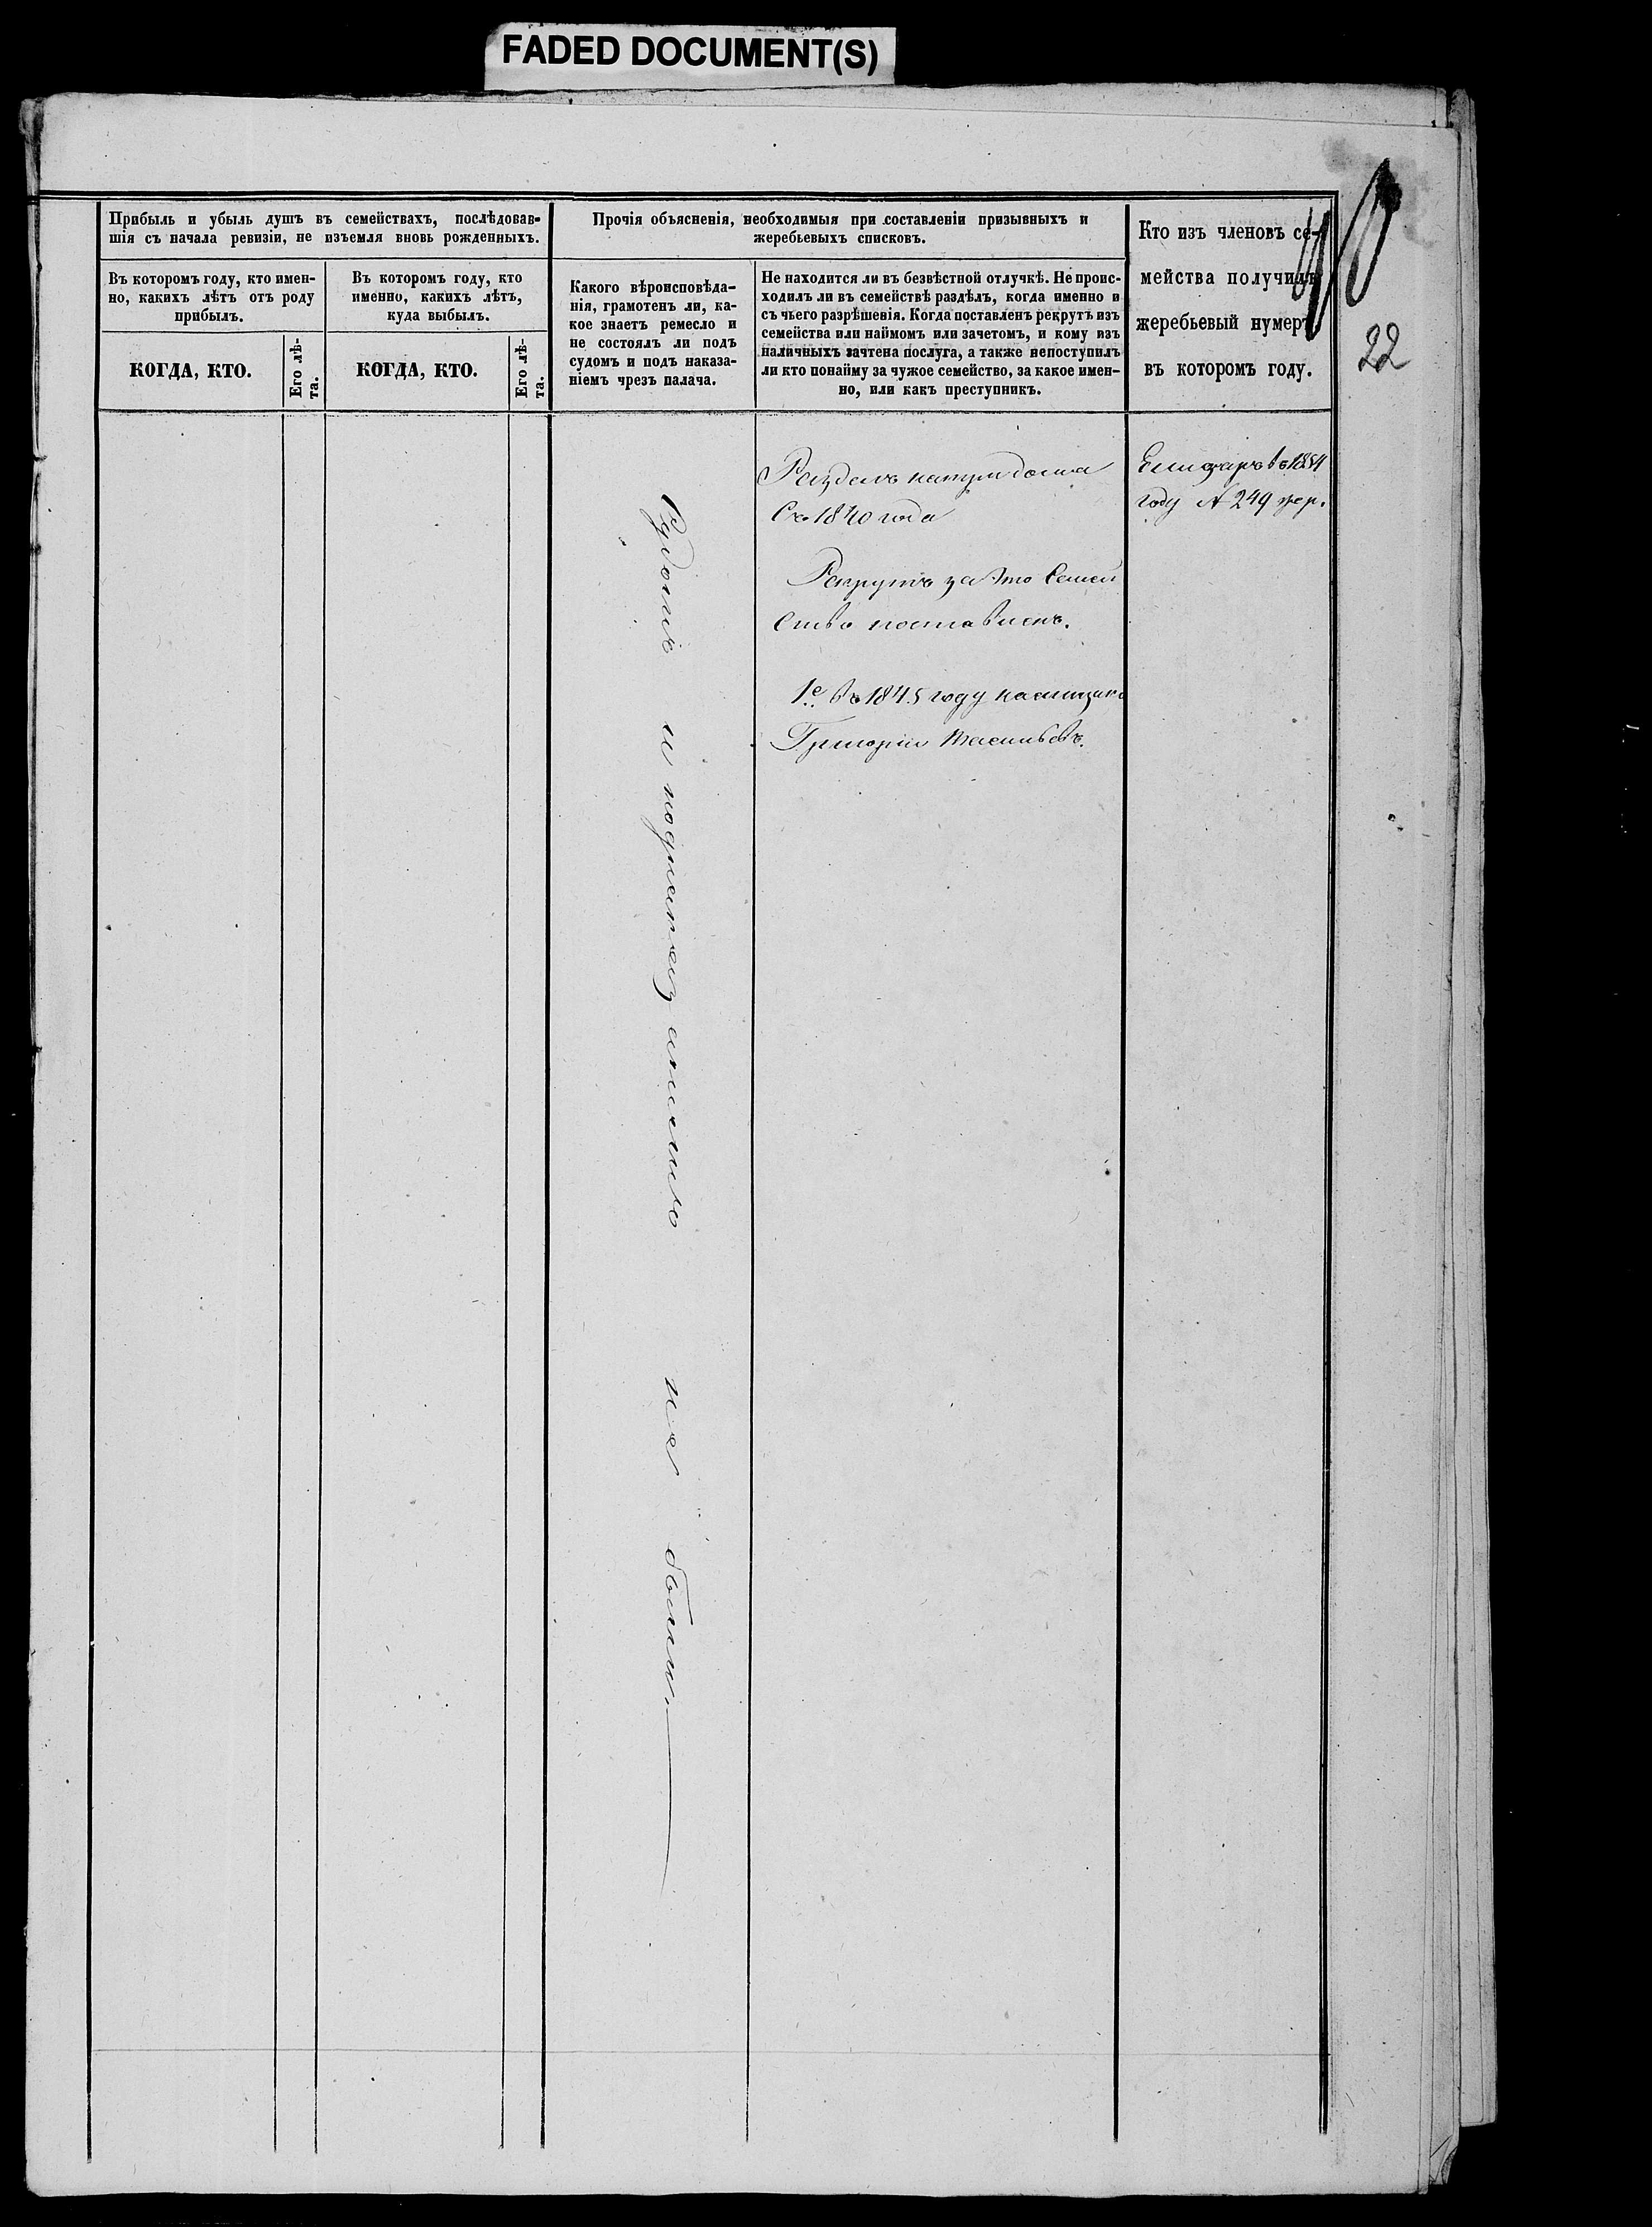 FADED DOCUMENT(S)
Прибыль и убыль душъ въ семействахъ, послѣдовав-
шія съ начала ревизіи, не изъемля вновь рожденныхъ.
Въ которомъ году, кто имен-
но, какихъ лѣтъ отъ роду
прибылъ.
КОГДА, КТО.
Его лѣ-
та.
Въ которомъ году, кто
именно, какихъ лѣтъ,
куда выбылъ.
КОГДА, КТО.
Его лѣ-
та.
Прочія объясненія, необходимыя при составленіи призывныхъ и
жеребьевыхъ списковъ.
Какого вѣроисповѣда-
нія, грамотенъ ли, ка-
кое знаетъ ремесло и
не состоялъ ли подъ
судомъ и подъ наказа-
ніемъ чрезъ палача.
Не находится ли въ безвѣстной отлучкѣ. Не проис-
ходилъ ли въ семействѣ раздѣлъ, когда именно и
съ чьего разрѣшенія. Когда поставленъ рекрутъ изъ
семейства или наймомъ или зачетомъ, и кому изъ
наличныхъ зачтена послуга, а также непоступилъ
ли кто понайму за чужое семейство, за какое имен-
но, или какъ преступникъ.
Кто изъ членовъ се-
мейства получилъ
жеребьевый нумеръ
въ которомъ году.
22
Разделъ натри дома
Съ 1840 года
Рекрутъ за Это Семей
Ство поставленъ.
1е. въ 1845 году наемщикъ
Григорій
въ 1854
году № 249 жер.
и поднаказаніемъ не были